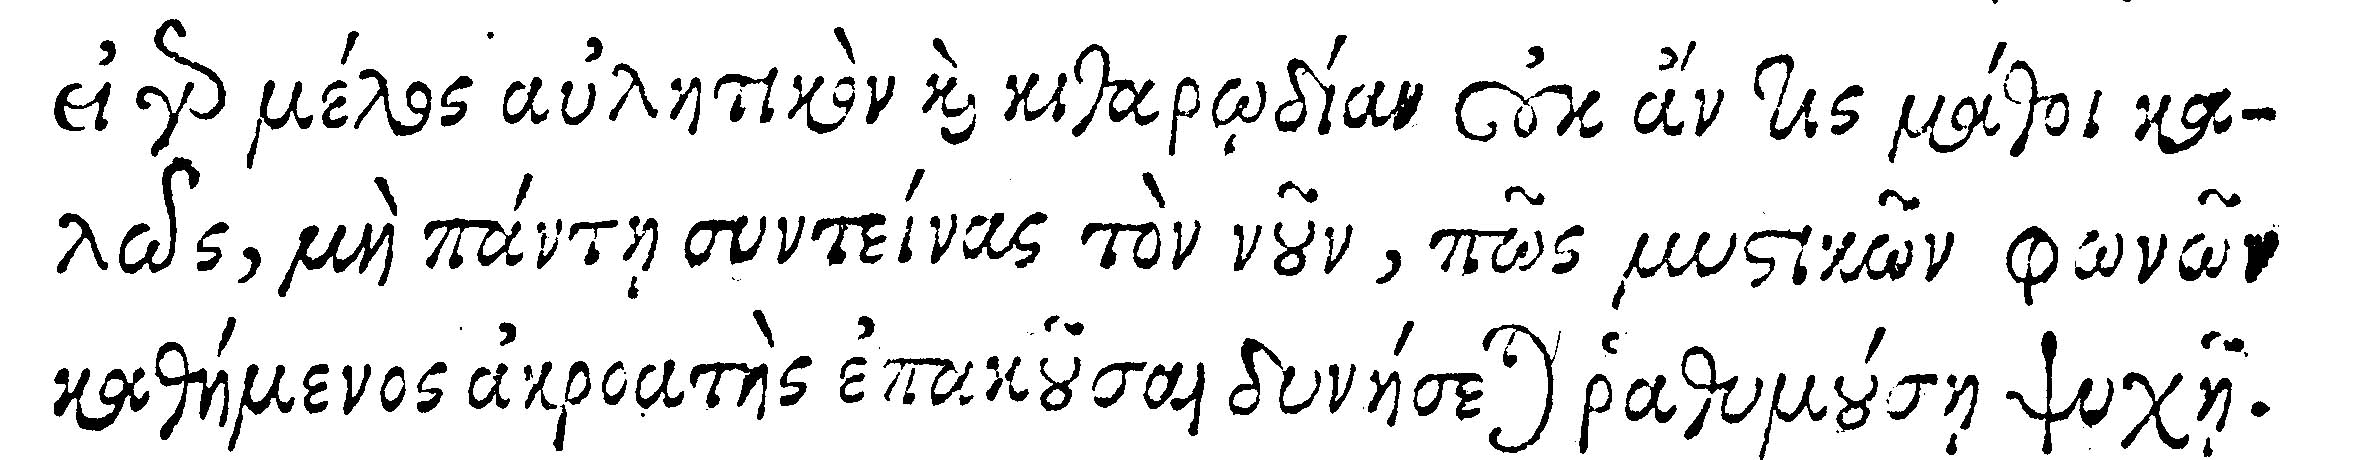 εἰ γὰρ μέλος αὐλητικὸν καὶ κιθαρῳδίαν οὐκ ἄν τις μάθοι κα-
λῶς, μὴ πάντῃ συντείνας τὸν νοῦν, πῶς μυστικῶν φωνῶν
καθήμενος ἀκροατὴς ἐπακοῦσαι δυνήσεται ῥαθυμούσῃ ψυχῇ.